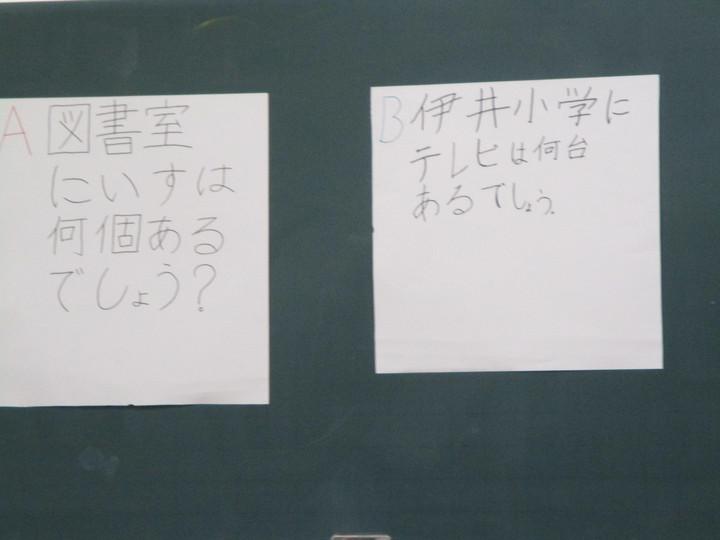 A 図書室
にいすは
何個ある
でしょう?
B 伊井小学に
テレビは何台
あるでしょう。